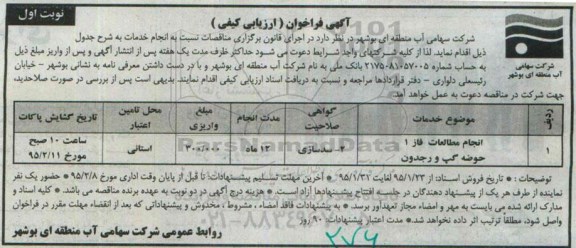 نوبت اول
آگهی فراخوان ( ارزیابی کیفی )
شرکت سهامی آب منطقه ای بوشهر
شرکت سهامی آب منطقه ای بوشهر در نظر دارد در اجرای قانون برگزاری مناقصات نسبت به انجام خدمات به شرح جدول
ذیل اقدام نماید. لذا از کلیه شرکتهای واجد شرایط دعوت می شود حداکثر ظرف مدت یک هفته پس از انتشار آگهی و پس از واریز مبلغ ذیل
به حساب شماره ۲۱۷۵۰۸۱۰۵۷۰۰۵ بانک ملی به نام شرکت آب منطقه ای بوشهر و با در دست داشتن معرفی نامه به نشانی بوشهر - خیابان
رئیسعلی دلواری - دفتر قراردادها مراجعه و نسبت به دریافت اسناد ارزیابی کیفی اقدام نمایند. بدیهی است پس از بررسی در صورت صلاحدید،
جهت شرکت در مناقصه دعوت به عمل خواهد آمد.
ردیف موضوع خدمات گواهی صلاحیت مدت انجام مبلغ واریزی محل تامین اعتبار تاریخ گشایش پاکات
۱ انجام مطالعات فاز ۱ حوضه گپ و رجدون سدسازی ۱۲ ماه ۳۰۰/۰۰۰ استانی ساعت ۱۰ صبح مورخ ۹۵/۲/۱۱
توضیحات : • تاریخ فروش اسناد: از ۹۵/۱/۲۳ لغایت ۹۵/۱/۳۱ • آخرین مهلت تسلیم پیشنهادات: تا قبل از پایان وقت اداری مورخ ۹۵/۲/۸ • حضور یک نفر
نماینده از طرف هر یک از پیشنهاد دهندگان در جلسه افتتاح پیشنهادها آزاد است. • هزینه درج آگهی در دو نوبت به عهده برنده مناقصه می باشد. • کلیه اسناد و
مدارک ارائه شده می بایست به مهر و امضاء مجاز تعهدآور برسد. • به پیشنهادات فاقد امضاء ، مشروط ، مخدوش و پیشنهاداتی که بعد از انقضاء مهلت مقرر در فراخوان
واصل شود، مطلقاً ترتیب اثر داده نخواهد شد. • مدت اعتبار پیشنهادات: ۹۰ روز
روابط عمومی شرکت سهامی آب منطقه ای بوشهر